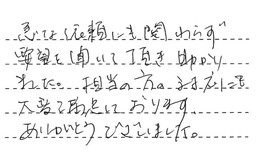 急な依頼にも関わらず
要望を聞いて頂き助かり
ました。担当の方の
大変満足しております。
ありがとうございました。